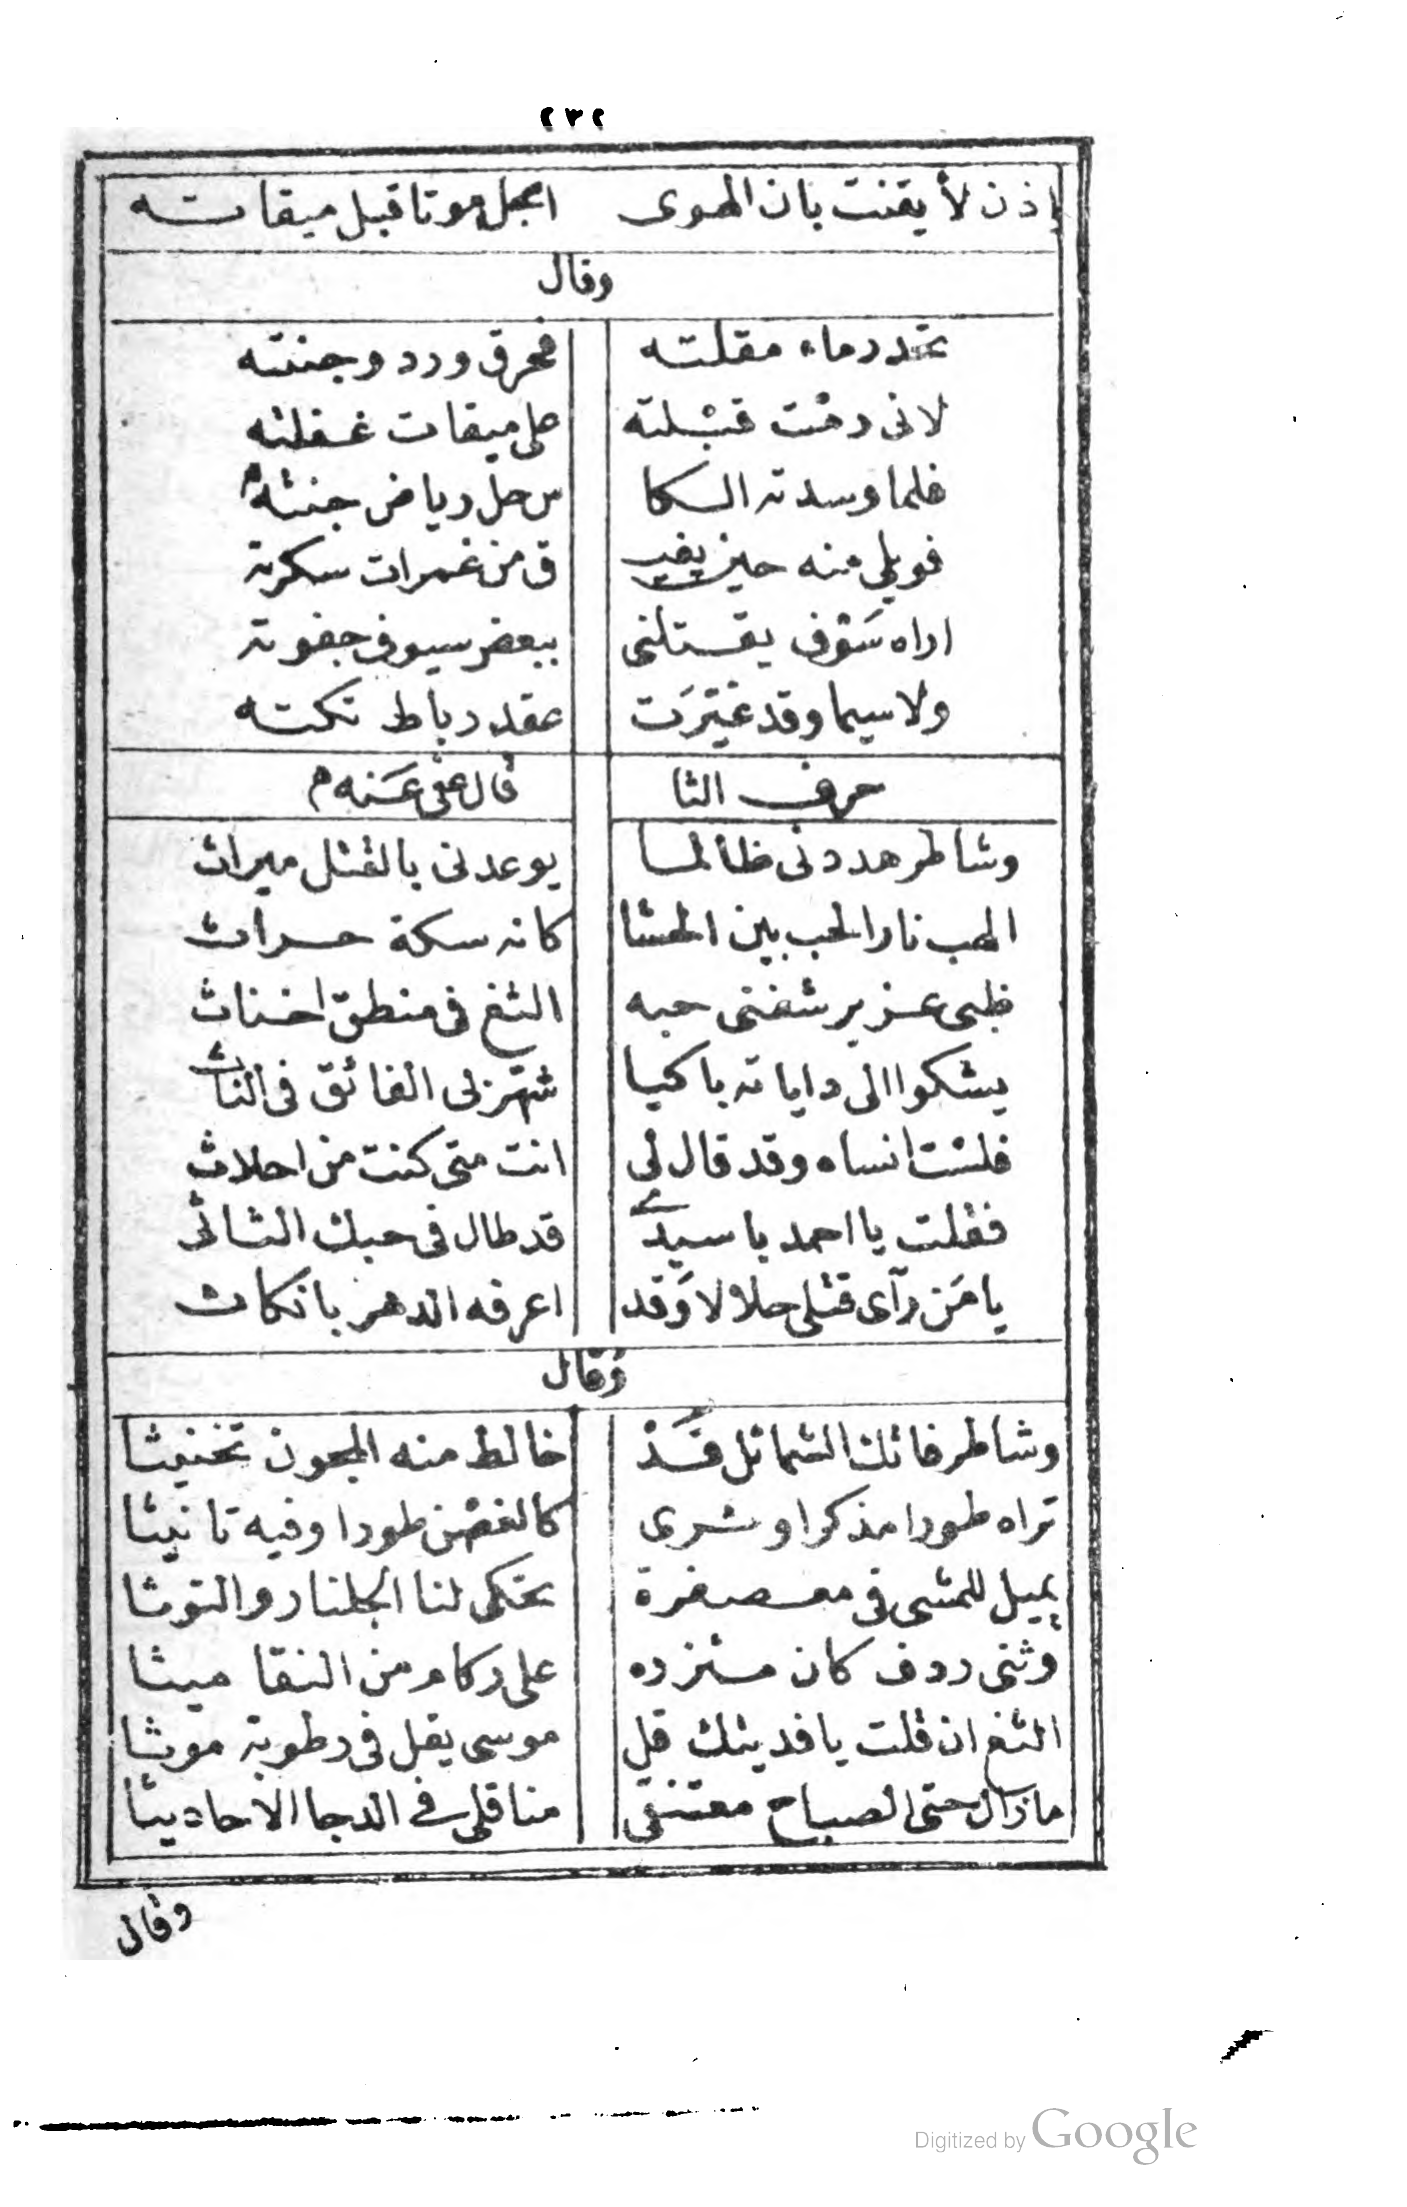 ٢٣٢
إذن لأيقنت بان الهوى اعجل موتا قبل ميقاته
وقال
تحدر ماء مقلته فحرق ورد وجنته
لانى رمت قبلته على ميقات غفلته
فلما وسدته الكا س حل رياض جنته م
فويلي منه حين يفي ق من غمرات سكرته
اراه سَوْف يقتلنى ببعض سيوف جفوته
ولا سيما وقد غيّرَت عقد رباط تكته
حرف الثا قال عفى عَنه م
وشاطر هددنى ظالما يوعدنى بالقتل ميراث
الهب نار الحب بين الحشا كانه سكة حراث
ظبى عزير شفنى حبه الثغ فى منطق اخناث
يشكوا الى داياته باكيا شتهزلى الفائق فى الناث
فلست انساه وقد قال لى انت متى كنت من احلاث
فقلت يا احمد يا سيدى قد طال فى حبك الثانى
يا مَن رآى قتلى حلالا وَقد اعرفه الدهر بانكاث
وَقال
وشاطر فاتك الشمائل قَدْ خالط منه المجون تخنيثا
تراه طورا مذكرا وترى كالغصن طورا وفيه تانيثا
يميل للمشى فى معصفرة يحكى لنا الجلنار والتوثا
وثنى ردف كان مئزره على ركام من النقا ميثا
الثغ ان قلت يا فديتك قل موسى يقل فى رطوبة موثا
ما زال حتى الصباح معتنقى مناقلى فى الدجا الأحاديثا
وقال
Digitized by Google